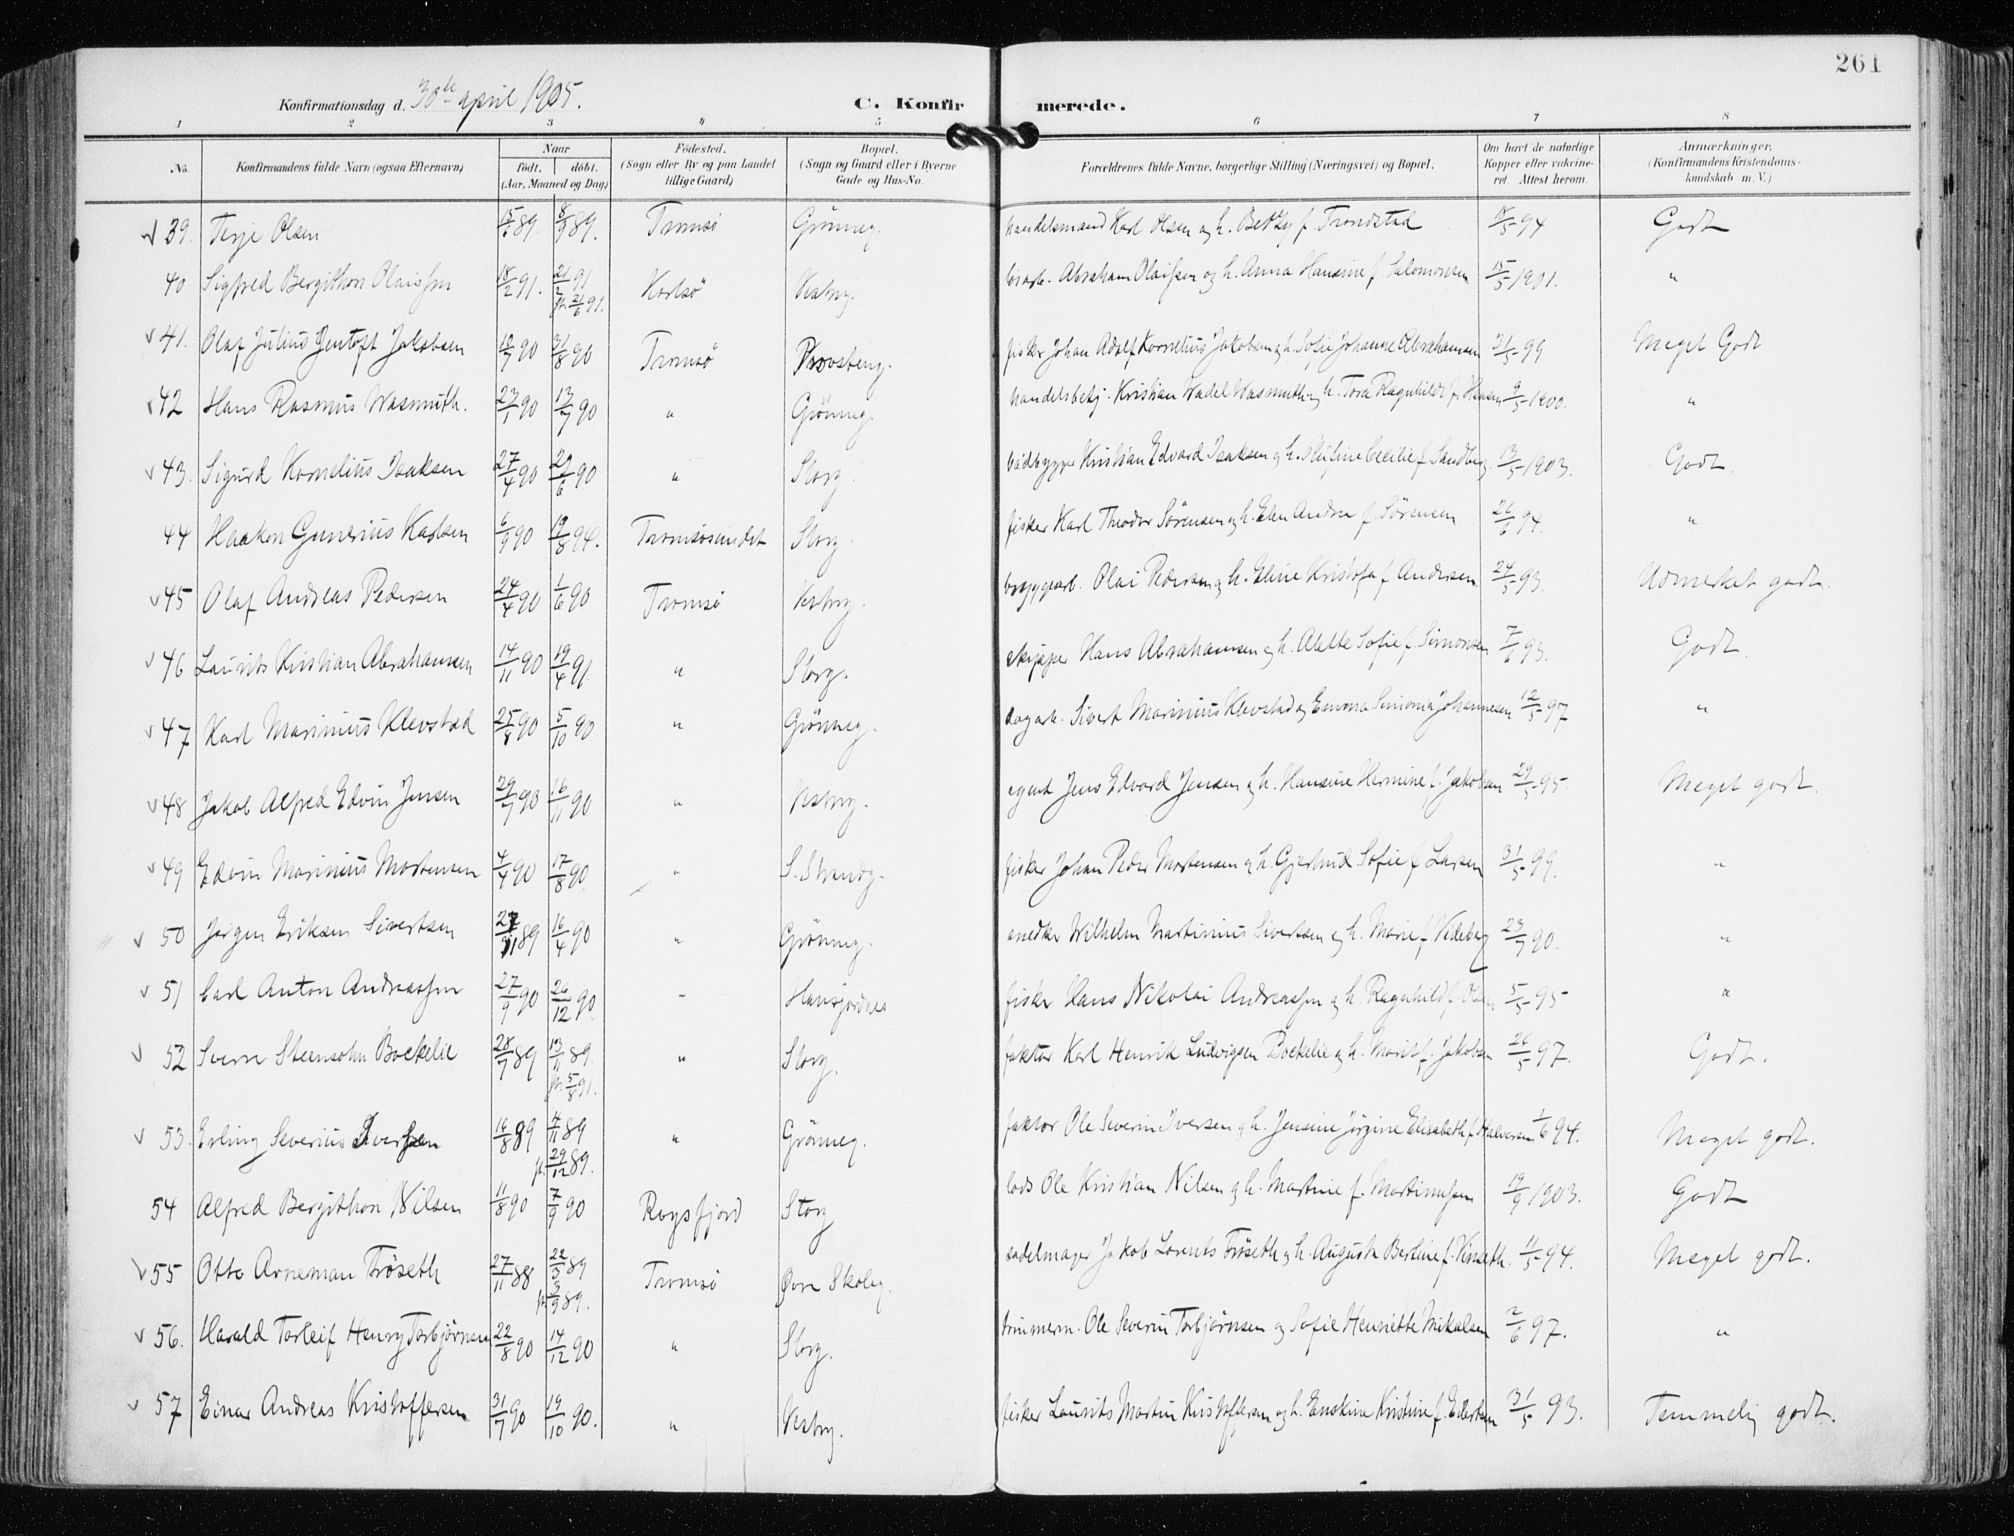 261
Konfirmationsdag d. 30te april 1905. C. Konfirmerede.
1 2 3 4 5 6 7 8
No. Konfirmandens fulde Navn (ogsaa Efternavn) Naar födt. döbt. (Aar, Maaned og Dag) Födested. (Sogn eller By og paa Landet tillige Gaard) Bopæl. (Sogn og Gaard eller i Byerne Gade og Hus-No. Forældrenes fulde Navne, borgerlige Stilling (Næringsvei) og Bopæl. Om havt de naturlige Kopper eller vakcineret. Attest herom. Anmærkninger. (Konfirmandens Kristendomskundskab m. V.)
39. Terje Olsen 89. 8/9 89. Tromsö Grönneg. handelsmand Karl Olsen og h. Betzy f. Trondstad 94 Godt
40 Sigfred Bergithon Olaissen 18/2 91. 21/2 91 pr. 21/6 91. Karlsö Vestreg. Abraham Olaissen og h. Anna Hansine f. Salomonsen 15/5 1901. "
41. Olaf Julius Gentoft Jakobsen 90 31/8 90 Tromsö Provsteng. fisker Johan Adolf Kornelius Jakobsen og h. Sofie Johanne Abrahamsen 31/5 99 Meget Godt
42 Hans Rasmus Wasmuth. 23/1 90 13/7 90 " Grönneg. handelsbetj. Kristian Wadel Wasmuth og h. Tora Ragnhild f. Hansen 9/5 1900. "
43. Sigurd Kornelius Isaksen 27/4 90 29/6 90 " Storg. baadbygger Kristian Edvard Isaksen og h. Cecilie f. Sandberg. 13/5 1903. Godt.
44 Haakon Gunerius Karlsen 6/9 90 19/8 94. Tromsösundet Storg. fisker Karl Theodor Sörensen og h. Elen Andrea f. Sörensen 26/6 94. "
45 Olaf Andreas Pedersen 24/4 90 1/6 90 Tromsö Vestreg. bryggearb. Olai Pedersen og h. Eline Kristofa f. Andersen 24/5 93. Udmerket godt.
46 Laurits Kristian Abrahamsen 14/11 90 19/4 91. " Storg. skipper Hans Abrahamsen og h. Alette Sofie f. Simonsen 7/6 93. Godt.
47 Karl Marinius Klevstad 25/8 90 5/10 90 " Grönneg. dagarb. Sivert Marinius Klevstad og Emma Simonia Johannesen 12/5 97 "
48 Jakob Alfred Edvin Jensen 29/7 90 16/11 90 " Vestreg. agent Jens Edvard Jensen og h. Hansine Hermine f. Jakobsen 29/5 95. Meget godt.
49 Edvin Marinius Mortensen 4/4 90 17/8 90. " S. Strandg. fisker Johan Peder Mortensen og h. Gjertrud Sofie f Larsen 31/5 99. "
50 Jørgen Eriksen Sivertsen 11 89 16/4 90 " Grönneg. snedker Wilhelm Martinius Sivertsen og h. Marie f. Videberg 23/7 90. "
51 Carl Anton Andreassen 27/9 90 26/12 90. " Hansjordnes fisker Hans Nikolai Andreassen og h. Ragnhild f. Olsen 5/5 95 "
52 Sverre Steensohn Boekelie 28/7 89 13/11 89. pr. 5/8 91. " Storg. faktor Karl Henrik Ludvigsen Boekelie og h. Marit f. Jakobsen 26/5 97. Godt.
53. Erling Severius Iversen 16/8 89 4/11 89 pr. 29/12 89. " Grönneg. faktor Ole Severin Iversen og h. Jensine Jörgine Elisabeth f. Halvorsen 1/6 94. Meget godt.
54 Alfred Bergithon Nilsen 11/8 90 7/9 90 Røysfjord Storg lods Ole Kristian Nilsen og h. Martine f. Martinussen 19/9 1903. Godt
55 Otto Arneman Fröseth 27/11 88 22/3 89 pr. 3/9 89. Tromsö Övre Skoleg. sadelmager Jakob Lorents Fröseth og h. Augusta Bertine f. 11/5 94. Meget godt.
56. Harald Torleif Henry Torbjörnsen 22/8 90 14/12 90 " Storg. tömmerm. Ole Severin Torbjörnsen og Sofie Henriette Mikalsen 2/6 97. "
57 Einar Andreas Kristoffersen 31/7 90 19/10 90. " Vestreg. fisker Laurits Martin Kristoffersen og h. Enskine Kristine f. Edertsen 31/5 93. Temmelig godt.